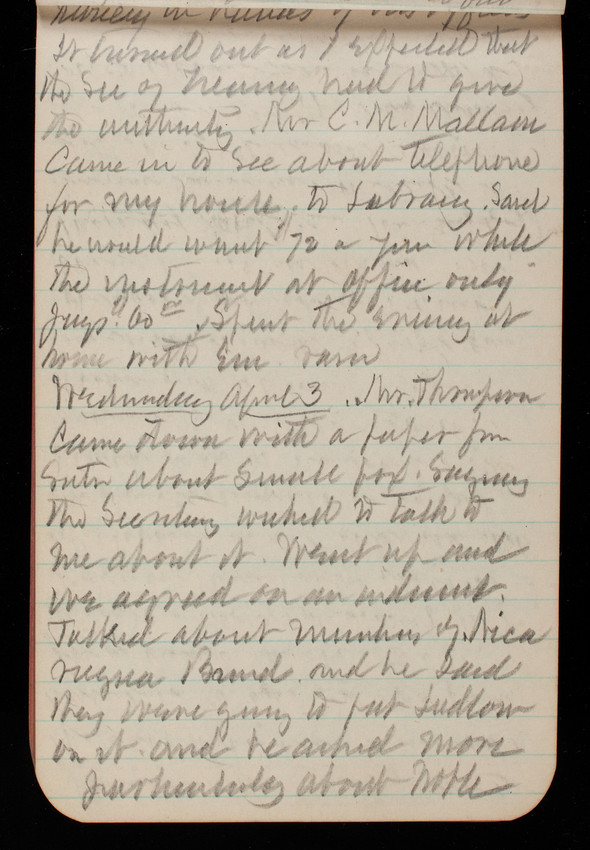 It turned out as I expected that
the Sec of Treasury had to give
the authority. Mr C. M. Mallam
Came in to see about Telephone
for my house, to Library. Said
he would want 72 a year while
the instrument at office only
pays 60. Spent the Evening at
home with Em.
Wednesday April 3. Mr. Thompson
Came down with a paper from
about Small pox. Saying
the Secretary wished to talk to
me about it. Went up and
we agreed on an
Talked about Members of Nica
ragua Board. and he Said
they were going to put Ludlow
on it. and he asked more
particularly about Noble